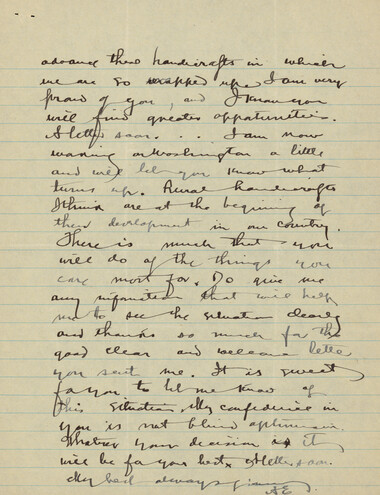 advance these handicrafts in which
we are so wrapped up. I am very
proud of you, and I know you
will find greater oppatunities.
A letter soon. . . I am now
working on Washington a little
and will let you know what
turns up. Rural handicrafts
I think are at the begining of
their development in our country.
There is much that you
will do of the things you
care most for. Do give me
any information that will help
me to see the situation clearly
and thanks so much for the
good clear and welcome letter
you sent me. It is sweet
for you to let me know of
this situation. My confidence in
you is not blind optimism.
Whatever your decision is it
will be for your best. A letter soon.
My best always
A E